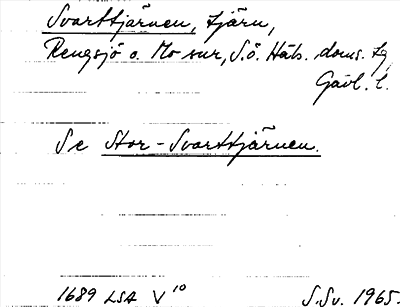 Svarttjärnen, tjärn,
Rengsjö o. Mo snr, S.ö. Häls. doms. tg
Gävl. l.
Se Stor-Svarttjärnen.
1689 LSA V 10 S.Sv. 1965.